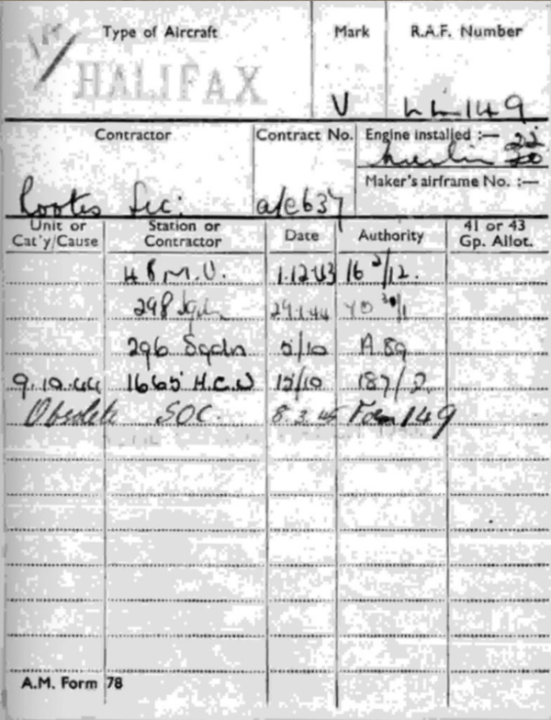 Type of Aircraft Mark R.A.F. Number
HALIFAX V LL149
Contractor Contract No. Engine installed :— 22
Merlin 20
Maker's airframe No. :—
Rootes Sec: a/c637
Unit or Cat'y/Cause Station or Contractor Date Authority 41 or 43 Gp. Allot.
48 M.U. 1.12.43 16 2/12.
298 Sqdn 29.1.44 30/1
296 Sqdn 5/10 A 89
9.10.44 1665 H.C.U 15/10 187/2.
Obsolete SOC. 8.3.45 Form 149
A.M. Form 78